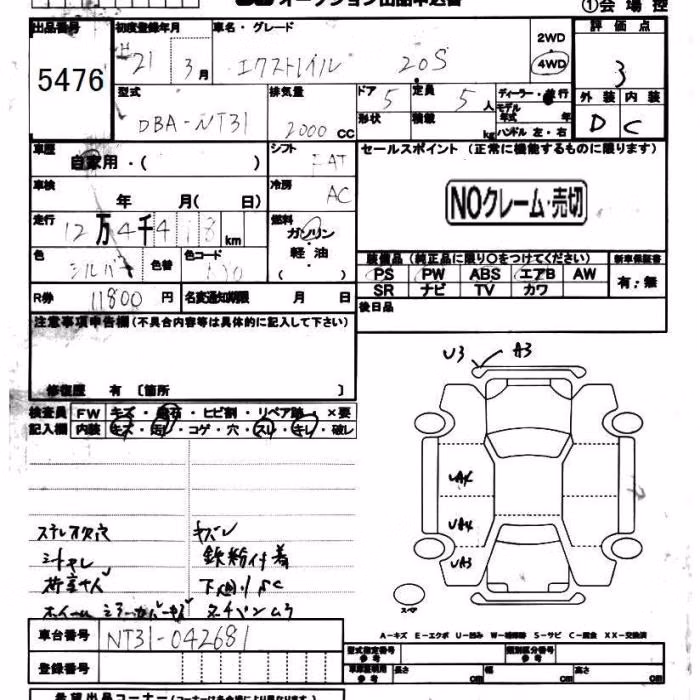 オークション出品申込書 ①会場控
出品番号 初度登録年月 車名・グレード 2WD 評価点
5476 21年 3月 エクストレイル 20S 4WD 3
型式 排気量 ドア 5 定員 5人 ディーラー・並行 外装 内装
DBA-NT31 2000cc 形状 積載 kg モデル年式 年 D C
ハンドル 左・右
車歴 シフト セールスポイント (正常に機能するものに限ります)
自家用・( ) FAT
車検 冷房 NOクレーム・売切
年 月( 日) AC
走行 燃料
12万4千418km ガソリン
軽油
( )
色 色替 色コード 装備品 (純正品に限り○をつけてください) 新車保証書
シルバー PS PW ABS エアB AW 有・無
SR ナビ TV カワ
R券 11800円 名変通知期限 月 日 後日品
注意事項申告欄(不具合内容等は具体的に記入して下さい)
修復歴 有 〔箇所 〕
U3 A3
検査員 FW キズ・飛石・ヒビ割・リペア跡・×要
記入欄 内装 キズ・汚レ・コゲ・穴・スレ・キレ・破レ
UA4
UA4
UA3
ステレオ欠穴 キズレ
鉄粉付着
スペア
A-キズ E-エクボ U-凹み W-補修跡 S-サビ C-腐食 XX-交換済
車台番号 NT31-042681
型式指定番号 参考 類別区分番号 参考
登録番号 車庫証明用 参考 長さ cm 幅 cm 高さ cm
希望出品コーナー(コーナーは各会場により異なります)